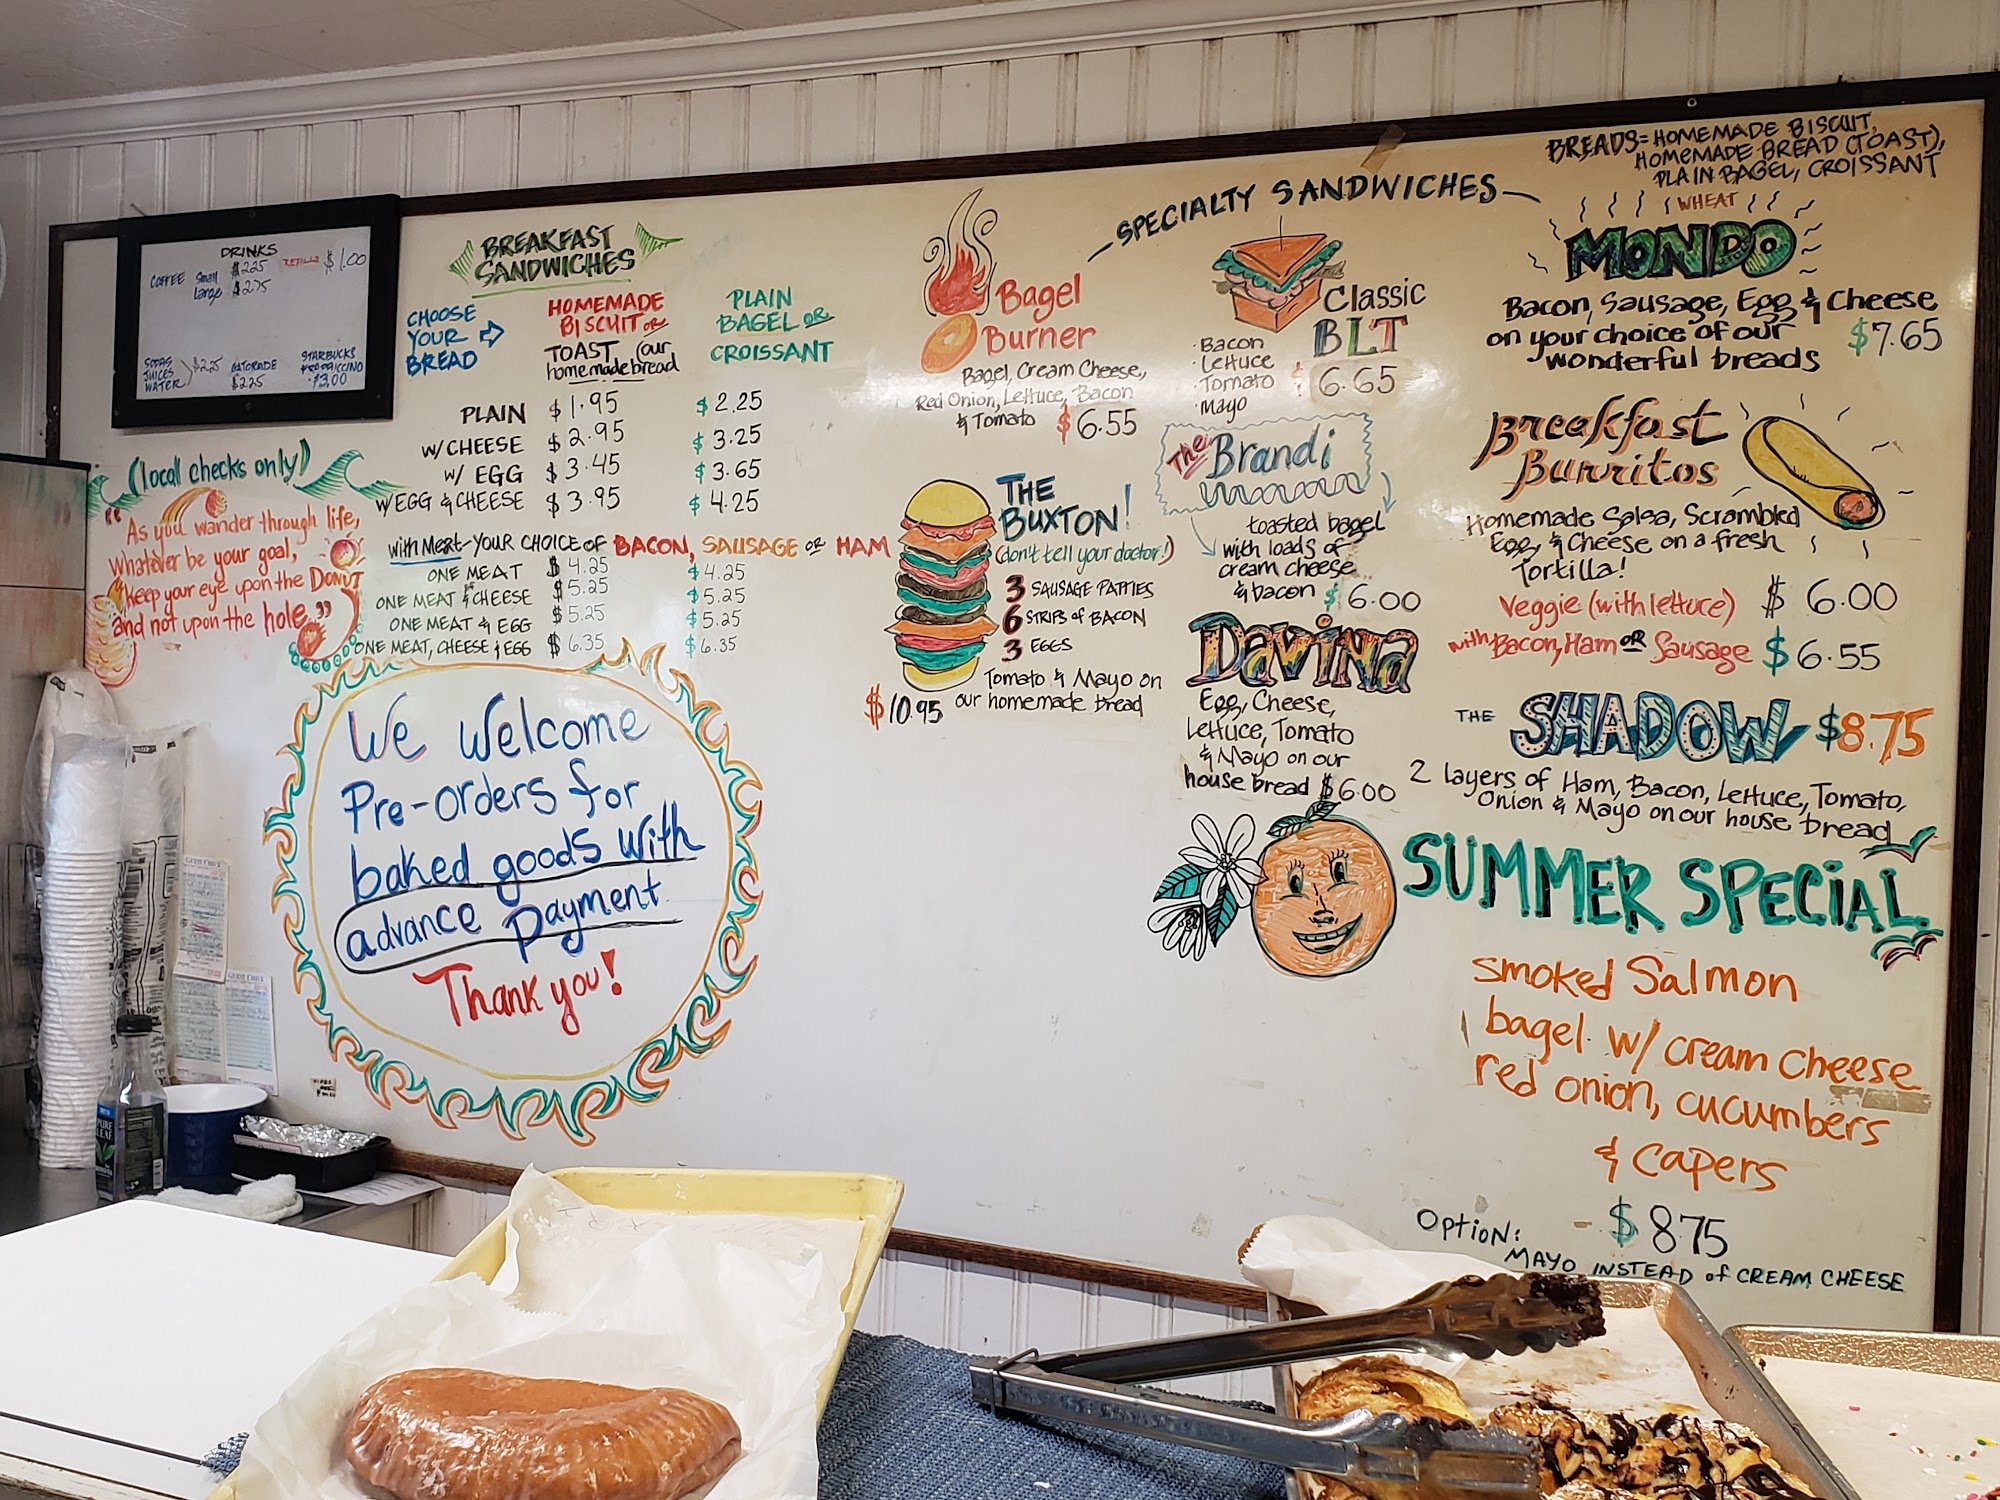 DRINKS
COFFEE Small $2.25 REFILLS $1.00
Large $2.75
SODAS
JUICES
WATER
$2.25
GATORADE
$2.25
STARBUCKS
FRAPPUCCINO
$3.00
(local checks only)
"As you wander through life,
Whatever be your goal,
keep your eye upon the DONUT
and not upon the hole."
BREAKFAST
SANDWICHES
CHOOSE
YOUR
BREAD
HOMEMADE
BISCUIT OR
TOAST (our
homemade bread
PLAIN
BAGEL OR
CROISSANT
PLAIN $1.95 $2.25
W/CHEESE $2.95 $3.25
W/ EGG $3.45 $3.65
W/EGG & CHEESE $3.95 $4.25
with Meat-YOUR CHOICE OF BACON, SAUSAGE OR HAM
ONE MEAT $4.25 $4.25
ONE MEAT & CHEESE $5.25 $5.25
ONE MEAT & EGG $5.25 $5.25
ONE MEAT, CHEESE & EGG $6.35 $6.35
We Welcome
Pre-orders for
baked goods with
advance payment
Thank you!
SPECIALTY SANDWICHES
Bagel
Burner
Bagel, Cream Cheese,
Red Onion, Lettuce, Bacon
& Tomato $6.55
THE
BUXTON!
(don't tell your doctor!)
3 SAUSAGE PATTIES
6 STRIPS of BACON
3 EGGS
Tomato & Mayo on
our homemade bread
$10.95
Classic
BLT
Bacon
Lettuce
Tomato
Mayo
$6.65
The Brandi
toasted bagel
with loads of
cream cheese
& bacon $6.00
Davina
Egg, Cheese,
Lettuce, Tomato
& Mayo on our
house bread $6.00
BREADS = HOMEMADE BISCUIT,
HOMEMADE BREAD (TOAST),
PLAIN BAGEL, CROISSANT
WHEAT
MONDO
Bacon, Sausage, Egg & Cheese
on your choice of our
wonderful breads
$7.65
Breakfast
Burritos
Homemade Salsa, Scrambled
Egg, & Cheese on a fresh
Tortilla!
Veggie (with lettuce) $6.00
with Bacon, Ham OR Sausage $6.55
THE SHADOW $8.75
2 layers of Ham, Bacon, Lettuce, Tomato,
Onion & Mayo on our house bread
SUMMER SPECIAL
Smoked Salmon
bagel w/ cream cheese
red onion, cucumbers
& capers
$8.75
Option:
MAYO INSTEAD of CREAM CHEESE
GUEST CHECK
GUEST CHECK
PURE
LEAF